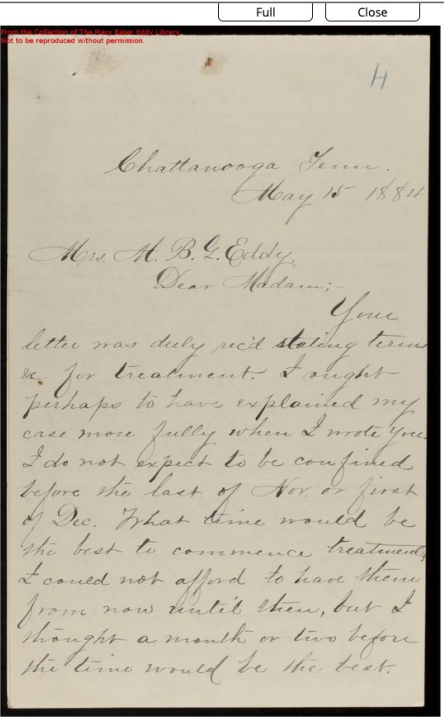 Full
Close
From the Collection of The Mary Baker Eddy Library.
Not to be reproduced without permission.
H
Chattanooga Tenn.
May 15 1884
Mrs. M. B. G. Eddy,
Dear Madam;-
Your
letter was duly rec'd stating terms
&c. for treatment. I ought
perhaps to have explained my
case more fully when I wrote you.
I do not expect to be confined
before the last of Nov. or first
of Dec. What time would be
the best to commence treatment,
I could not afford to have them
from now until then, but I
thought a month or two before
the time would be the best.